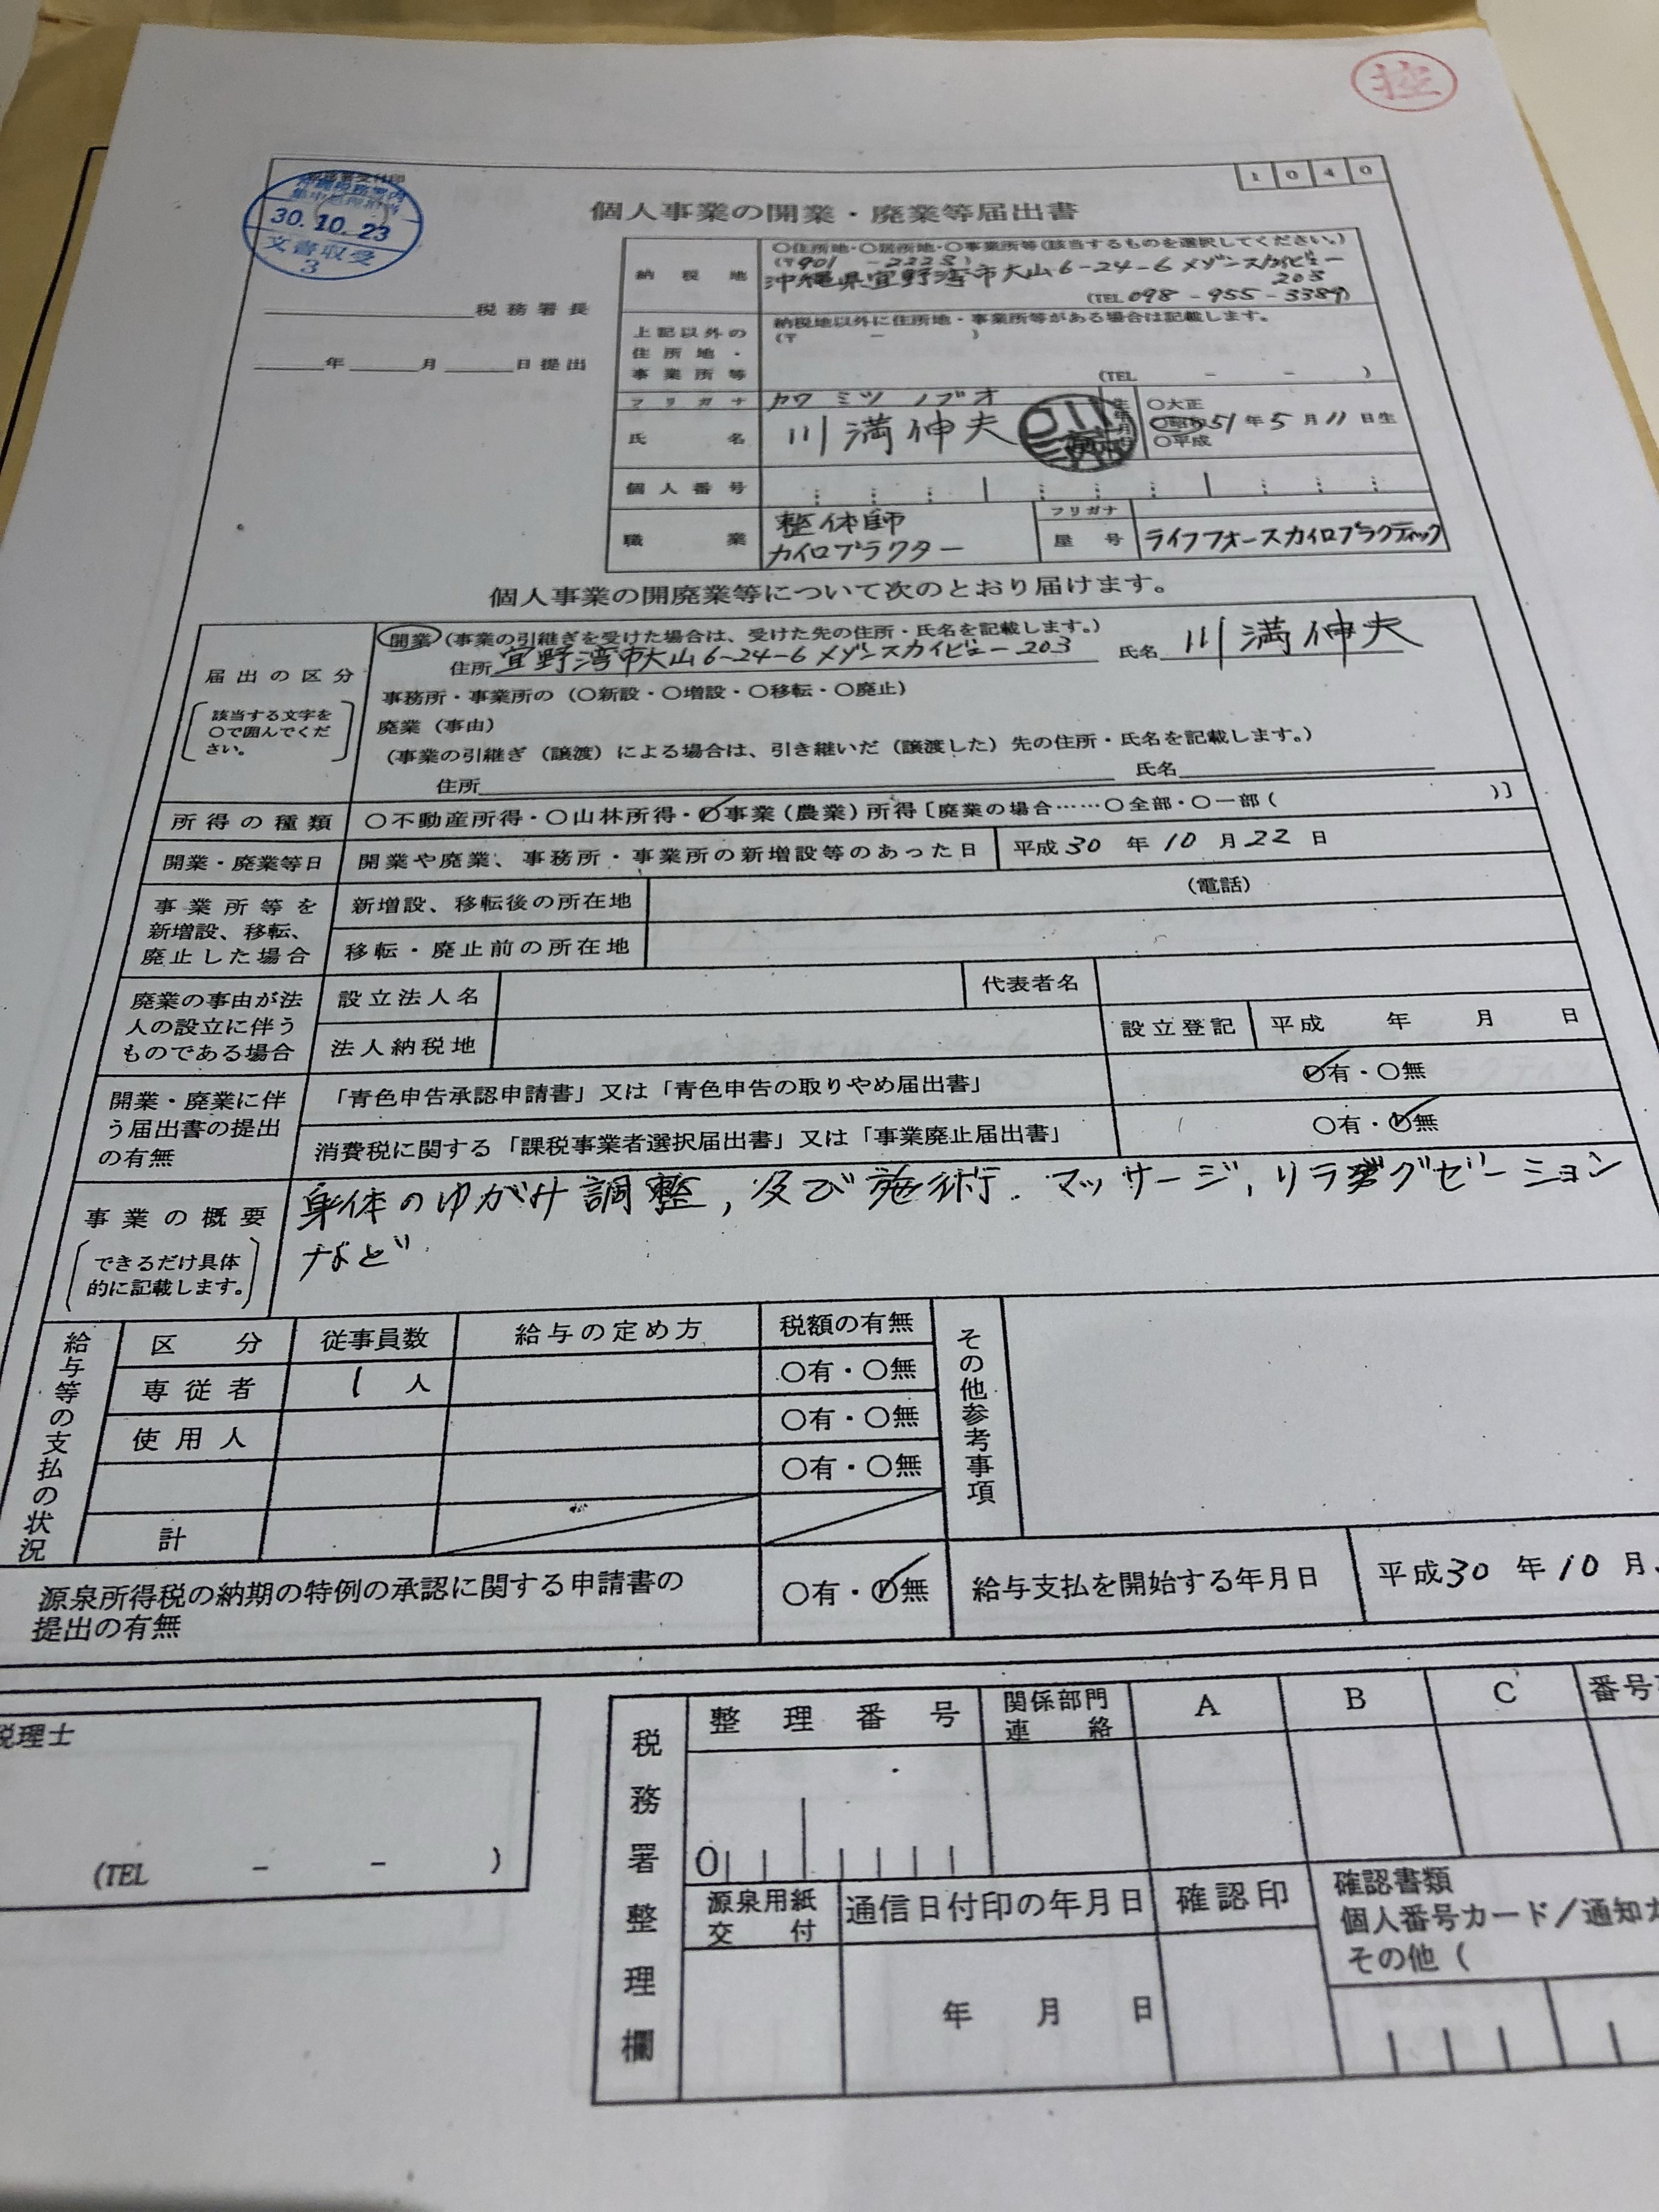 控
1040
税務署受付印
30.10.23
文書収受
3
個人事業の開業・廃業等届出書
税務署長
年 月 日提出
納税地
○住所地・○居所地・○事業所等(該当するものを選択してください。)
(〒901-2223)
沖縄県宜野湾市大山6-24-6 メゾンスカイビュー
203
(TEL 098-955-3389)
上記以外の住所地・事業所等
納税地以外に住所地・事業所等がある場合は記載します。
(〒 - )
(TEL - - )
フリガナ カワ ミツ ノブオ
氏名 川満伸夫
生年月日
○大正
○昭和 51年5月11日生
○平成
個人番号
職業 整体師
カイロプラクター
フリガナ
屋号 ライフフォースカイロプラクティック
個人事業の開廃業等について次のとおり届けます。
届出の区分
該当する文字を
○で囲んでくだ
さい。
開業(事業の引継ぎを受けた場合は、受けた先の住所・氏名を記載します。)
住所 宜野湾市大山6-24-6 メゾンスカイビュー203 氏名 川満伸夫
事務所・事業所の(○新設・○増設・○移転・○廃止)
廃業(事由)
(事業の引継ぎ(譲渡)による場合は、引き継いだ(譲渡した)先の住所・氏名を記載します。)
住所 氏名
所得の種類 ○不動産所得・○山林所得・○事業(農業)所得[廃業の場合……○全部・○一部( )]
開業・廃業等日 開業や廃業、事務所・事業所の新増設等のあった日 平成30年10月22日
事業所等を
新増設、移転、
廃止した場合
新増設、移転後の所在地 (電話)
移転・廃止前の所在地
廃業の事由が法
人の設立に伴う
ものである場合
設立法人名 代表者名
法人納税地 設立登記 平成 年 月 日
開業・廃業に伴
う届出書の提出
の有無
「青色申告承認申請書」又は「青色申告の取りやめ届出書」 ○有・○無
消費税に関する「課税事業者選択届出書」又は「事業廃止届出書」 ○有・○無
事業の概要
できるだけ具体
的に記載します。
身体のゆがみ調整,及び施術.マッサージ,リラグゼーション
など
給与等の支払の状況
区分 従事員数 給与の定め方 税額の有無
専従者 1人 ○有・○無
使用人 ○有・○無
○有・○無
計
その他参考事項
源泉所得税の納期の特例の承認に関する申請書の
提出の有無
○有・○無 給与支払を開始する年月日 平成30年10月
税理士
(TEL - - )
税務署整理欄
整理番号 関係部門
連絡 A B C 番号
0
源泉用紙
交付 通信日付印の年月日 確認印
年 月 日
確認書類
個人番号カード/通知
その他(